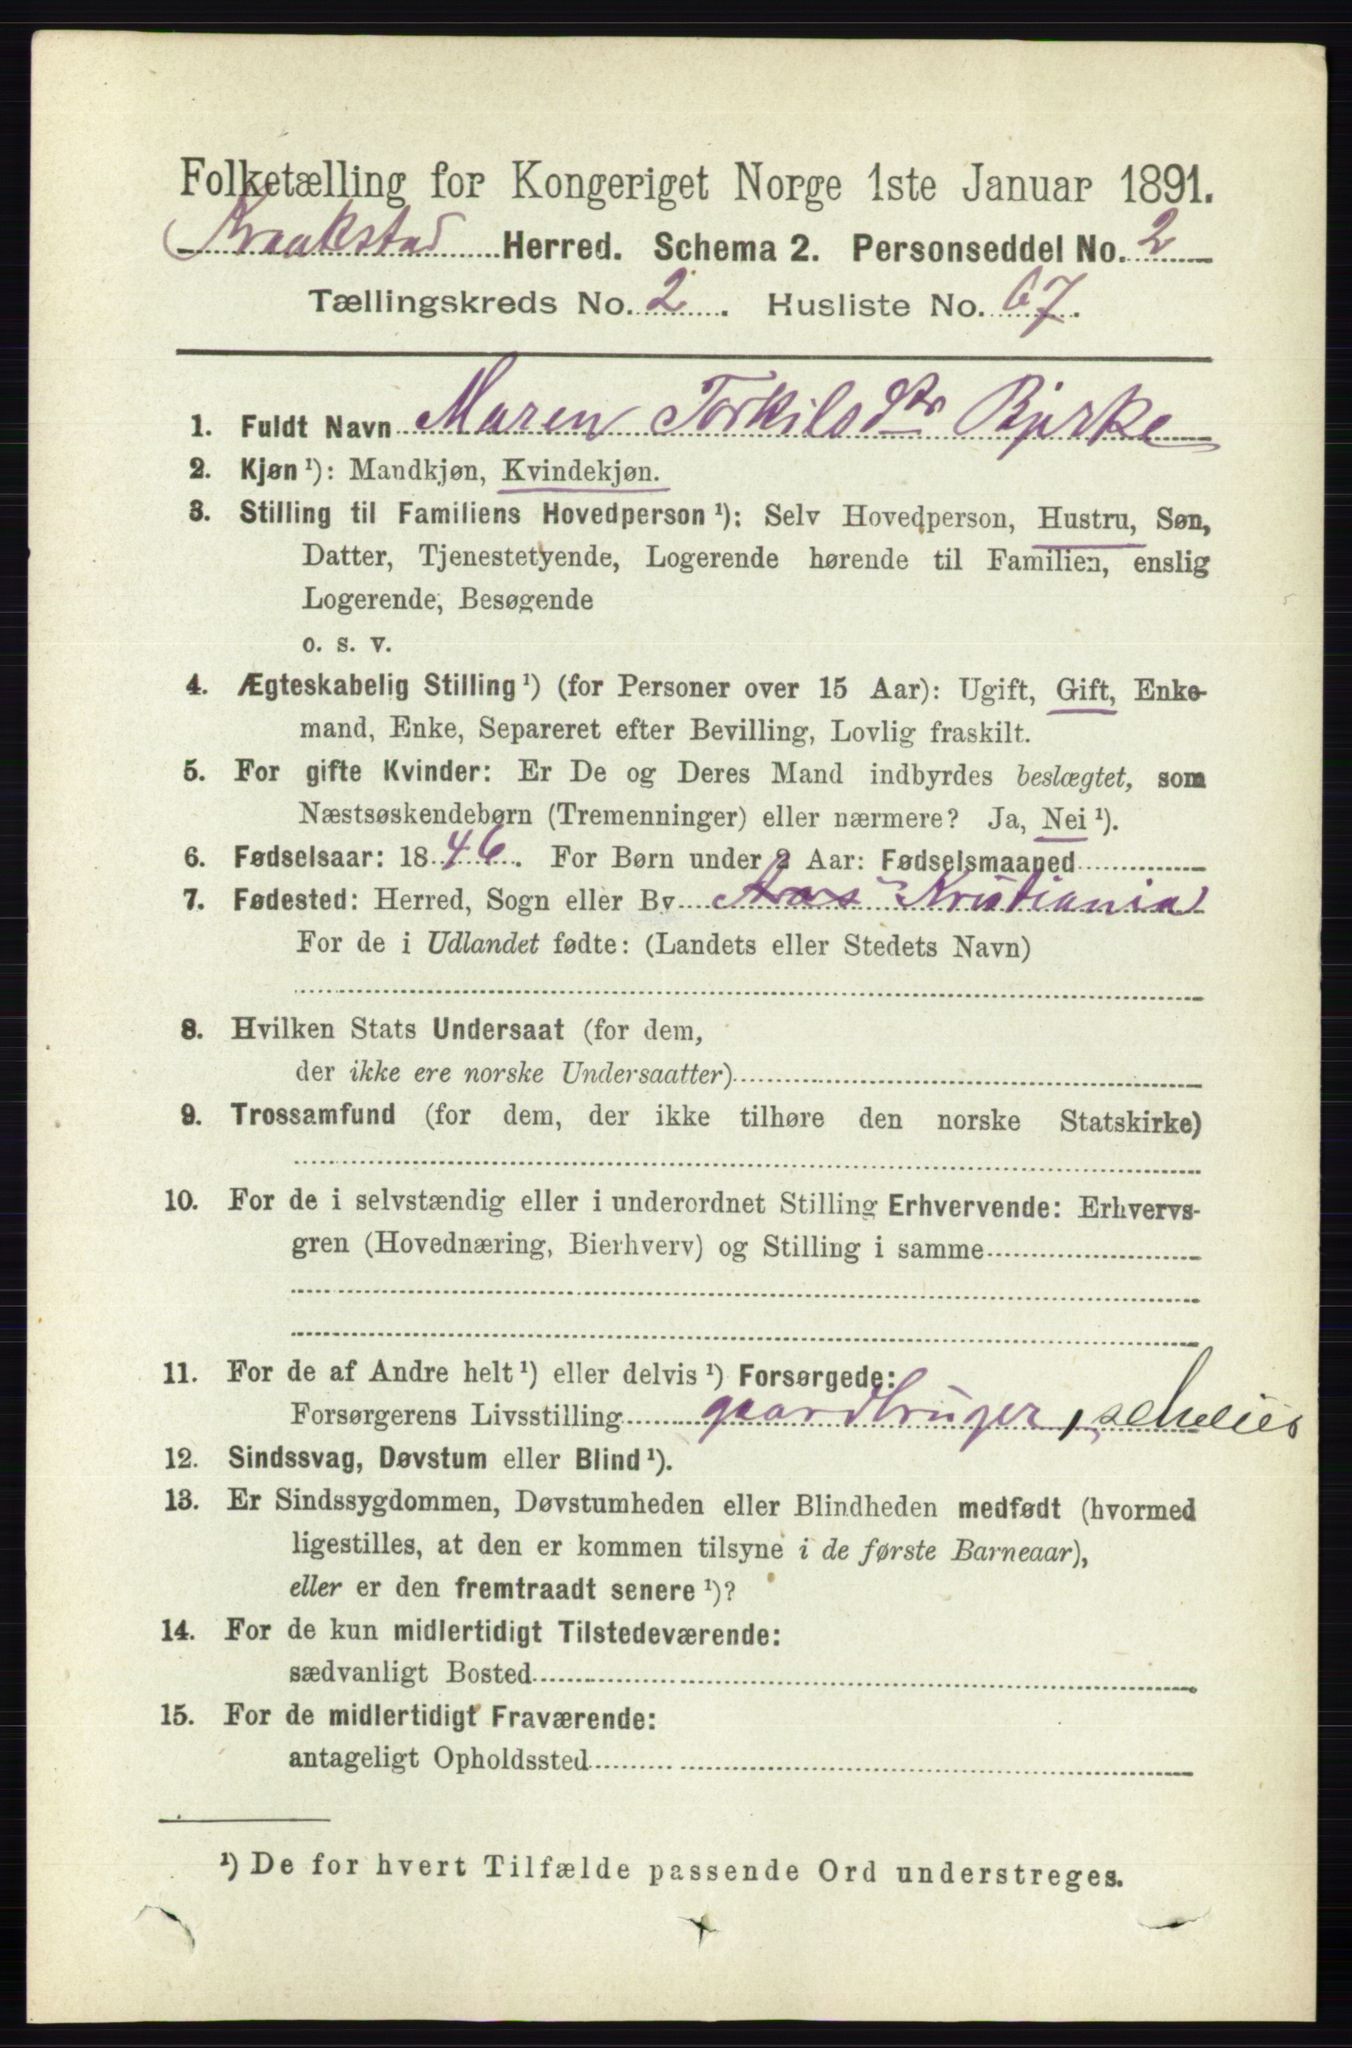 Folketælling for Kongeriget Norge 1ste Januar 1891.
Kraakstad Herred. Schema 2. Personseddel No. 2
Tællingskreds No. 2. Husliste No. 67.
1. Fuldt Navn Maren Torkilsdtr Bjerke
2. Kjøn ¹): Mandkjøn, Kvindekjøn.
3. Stilling til Familiens Hovedperson ¹): Selv Hovedperson, Hustru, Søn,
Datter, Tjenestetyende, Logerende hørende til Familien, enslig
Logerende, Besøgende
o. s. v.
4. Ægteskabelig Stilling ¹) (for Personer over 15 Aar): Ugift, Gift, Enke-
mand, Enke, Separeret efter Bevilling, Lovlig fraskilt.
5. For gifte Kvinder: Er De og Deres Mand indbyrdes beslægtet, som
Næstsøskendebørn (Tremenninger) eller nærmere? Ja, Nei ¹).
6. Fødselsaar: 1846. For Børn under 2 Aar: Fødselsmaaned
7. Fødested: Herred, Sogn eller By Aas Kristiania
For de i Udlandet fødte: (Landets eller Stedets Navn)
8. Hvilken Stats Undersaat (for dem,
der ikke ere norske Undersaatter)
9. Trossamfund (for dem, der ikke tilhøre den norske Statskirke)
10. For de i selvstændig eller i underordnet Stilling Erhvervende: Erhvervs-
gren (Hovednæring, Bierhverv) og Stilling i samme
11. For de af Andre helt ¹) eller delvis ¹) Forsørgede:
Forsørgerens Livsstilling gaardbruger, selveier
12. Sindssvag, Døvstum eller Blind ¹).
13. Er Sindssygdommen, Døvstumheden eller Blindheden medfødt (hvormed
ligestilles, at den er kommen tilsyne i de første Barneaar),
eller er den fremtraadt senere ¹)?
14. For de kun midlertidigt Tilstedeværende:
sædvanligt Bosted
15. For de midlertidigt Fraværende:
antageligt Opholdssted
¹) De for hvert Tilfælde passende Ord understreges.